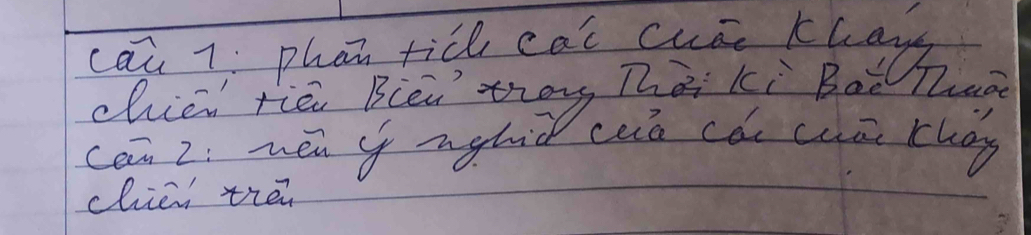 Câu 1: phân tích các cuộc kháng
chiến tiêu Biểu trong Thời kì Bắc Thuộc
câu 2: nêu ý nghĩa của các cuộc kháng
chiến trên